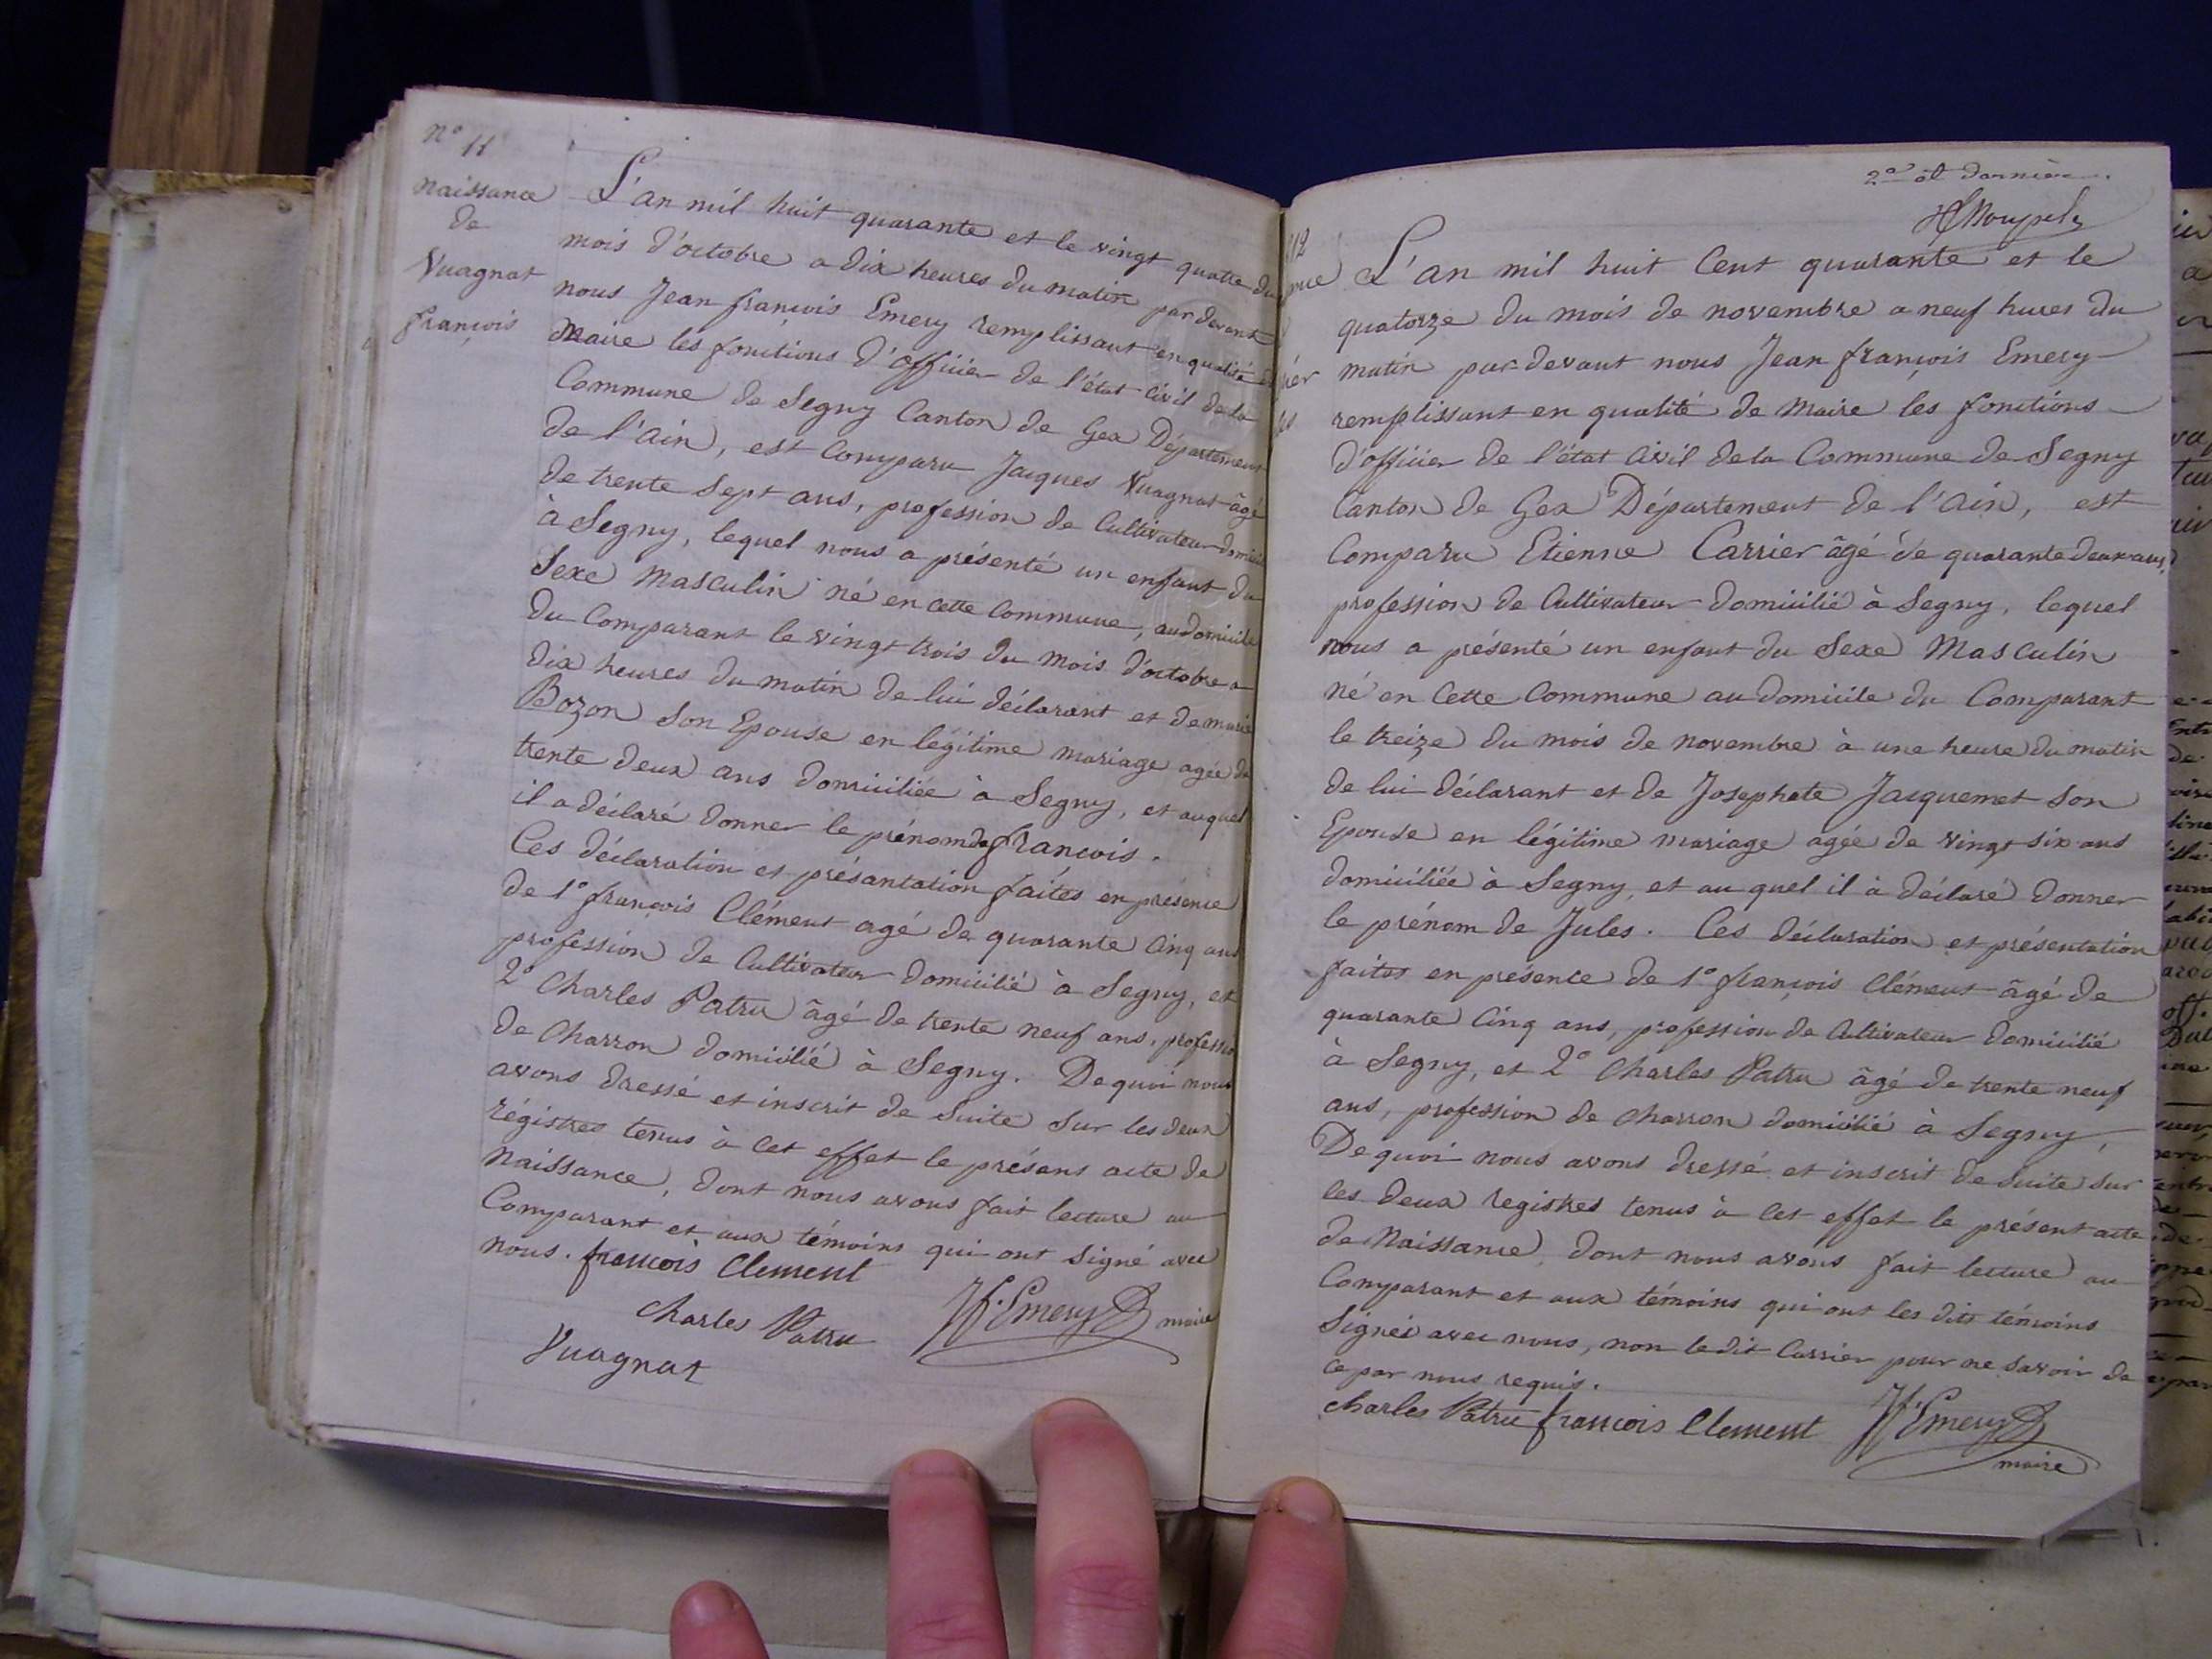 n° 11
naissance
de
Vuagnat
françois
L'an mil huit quarante et le vingt quatre du
mois d'octobre a dix heures du matin par devant
nous Jean françois Emery remplissant en qualité de
Maire les fonctions d'officier de l'état civil de la
Commune de Segny Canton de Gex Département
de l'ain, est Comparu Jacques Vuagnat âgé
de trente sept ans, profession de Cultivateur domicilié
à Segny, lequel nous a présenté un enfant du
Sexe Masculin né en cette commune, au domicile
du Comparant le vingt trois du mois d'octobre a
dix heures du matin de lui déclarant et de marie
Bozon son Epouse en légitime mariage agée de
trente deux ans domiciliée à Segny, et auquel
il a déclaré donner le prénom de françois.
Ces déclaration et présantation faites en présence
de 1° françois Clément agé de quarante cinq ans
profession de Cultivateur domicilié à Segny, et
2° Charles Patru âgé de trente neuf ans, profession
de Charron domicilié à Segny. De quoi nous
avons dressé et inscrit de suite sur les deux
régistres tenus à cet effet le présent acte de
Naissance, dont nous avons fait lecture au
Comparant et aux témoins qui ont signé avec
nous. françois Clement
Charles Patru JF. Emery maire
Vuagnat
2e et dernière.
L'an mil huit Cent quarante et le
quatorze du mois de novembre a neuf hures du
matin par devant nous Jean françois Emery
remplissant en qualité de Maire les fonctions
d'officier de l'état civil de la Commune de Segny
Canton de Gex Département de l'ain, est
Comparu Etienne Carrier âgé de quarante deux ans,
profession de Cultivateur domicilié à Segny, lequel
nous a présenté un enfant du Sexe Masculin
né en Cette Commune au domicile du Comparant
le treize du mois de novembre à une heure du matin
de lui déclarant et de Josephate Jacquemet son
Epouse en légitime mariage agée de vingt six ans
domiciliée à Segny, et au quel il à déclaré donner
le prénom de Jules. Ces déclaration et présentation
faites en présence de 1° françois Clément âgé de
quarante Cinq ans, profession de Cultivateur domicilié
à Segny, et 2° Charles Patru âgé de trente neuf
ans, profession de charron domicilié à Segny,
De quoi nous avons dressé et inscrit de suite sur
les deux registres tenus à cet effet le présent acte
de Naissance, dont nous avons fait lecture au
Comparant et aux témoins qui ont les dits témoins
Signés avec nous, non le dit Carrier pour ne savoir de
ce par nous requis.
Charles Patru françois Clement JF Emery
maire